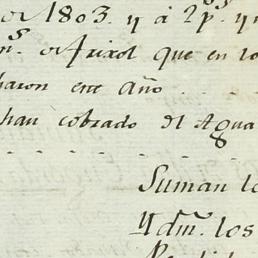 de 1803. y á 2p.s y
n.s de frixol que en lo
haron ene año
han cobrado del Agua
Suman lo
Ydm. los